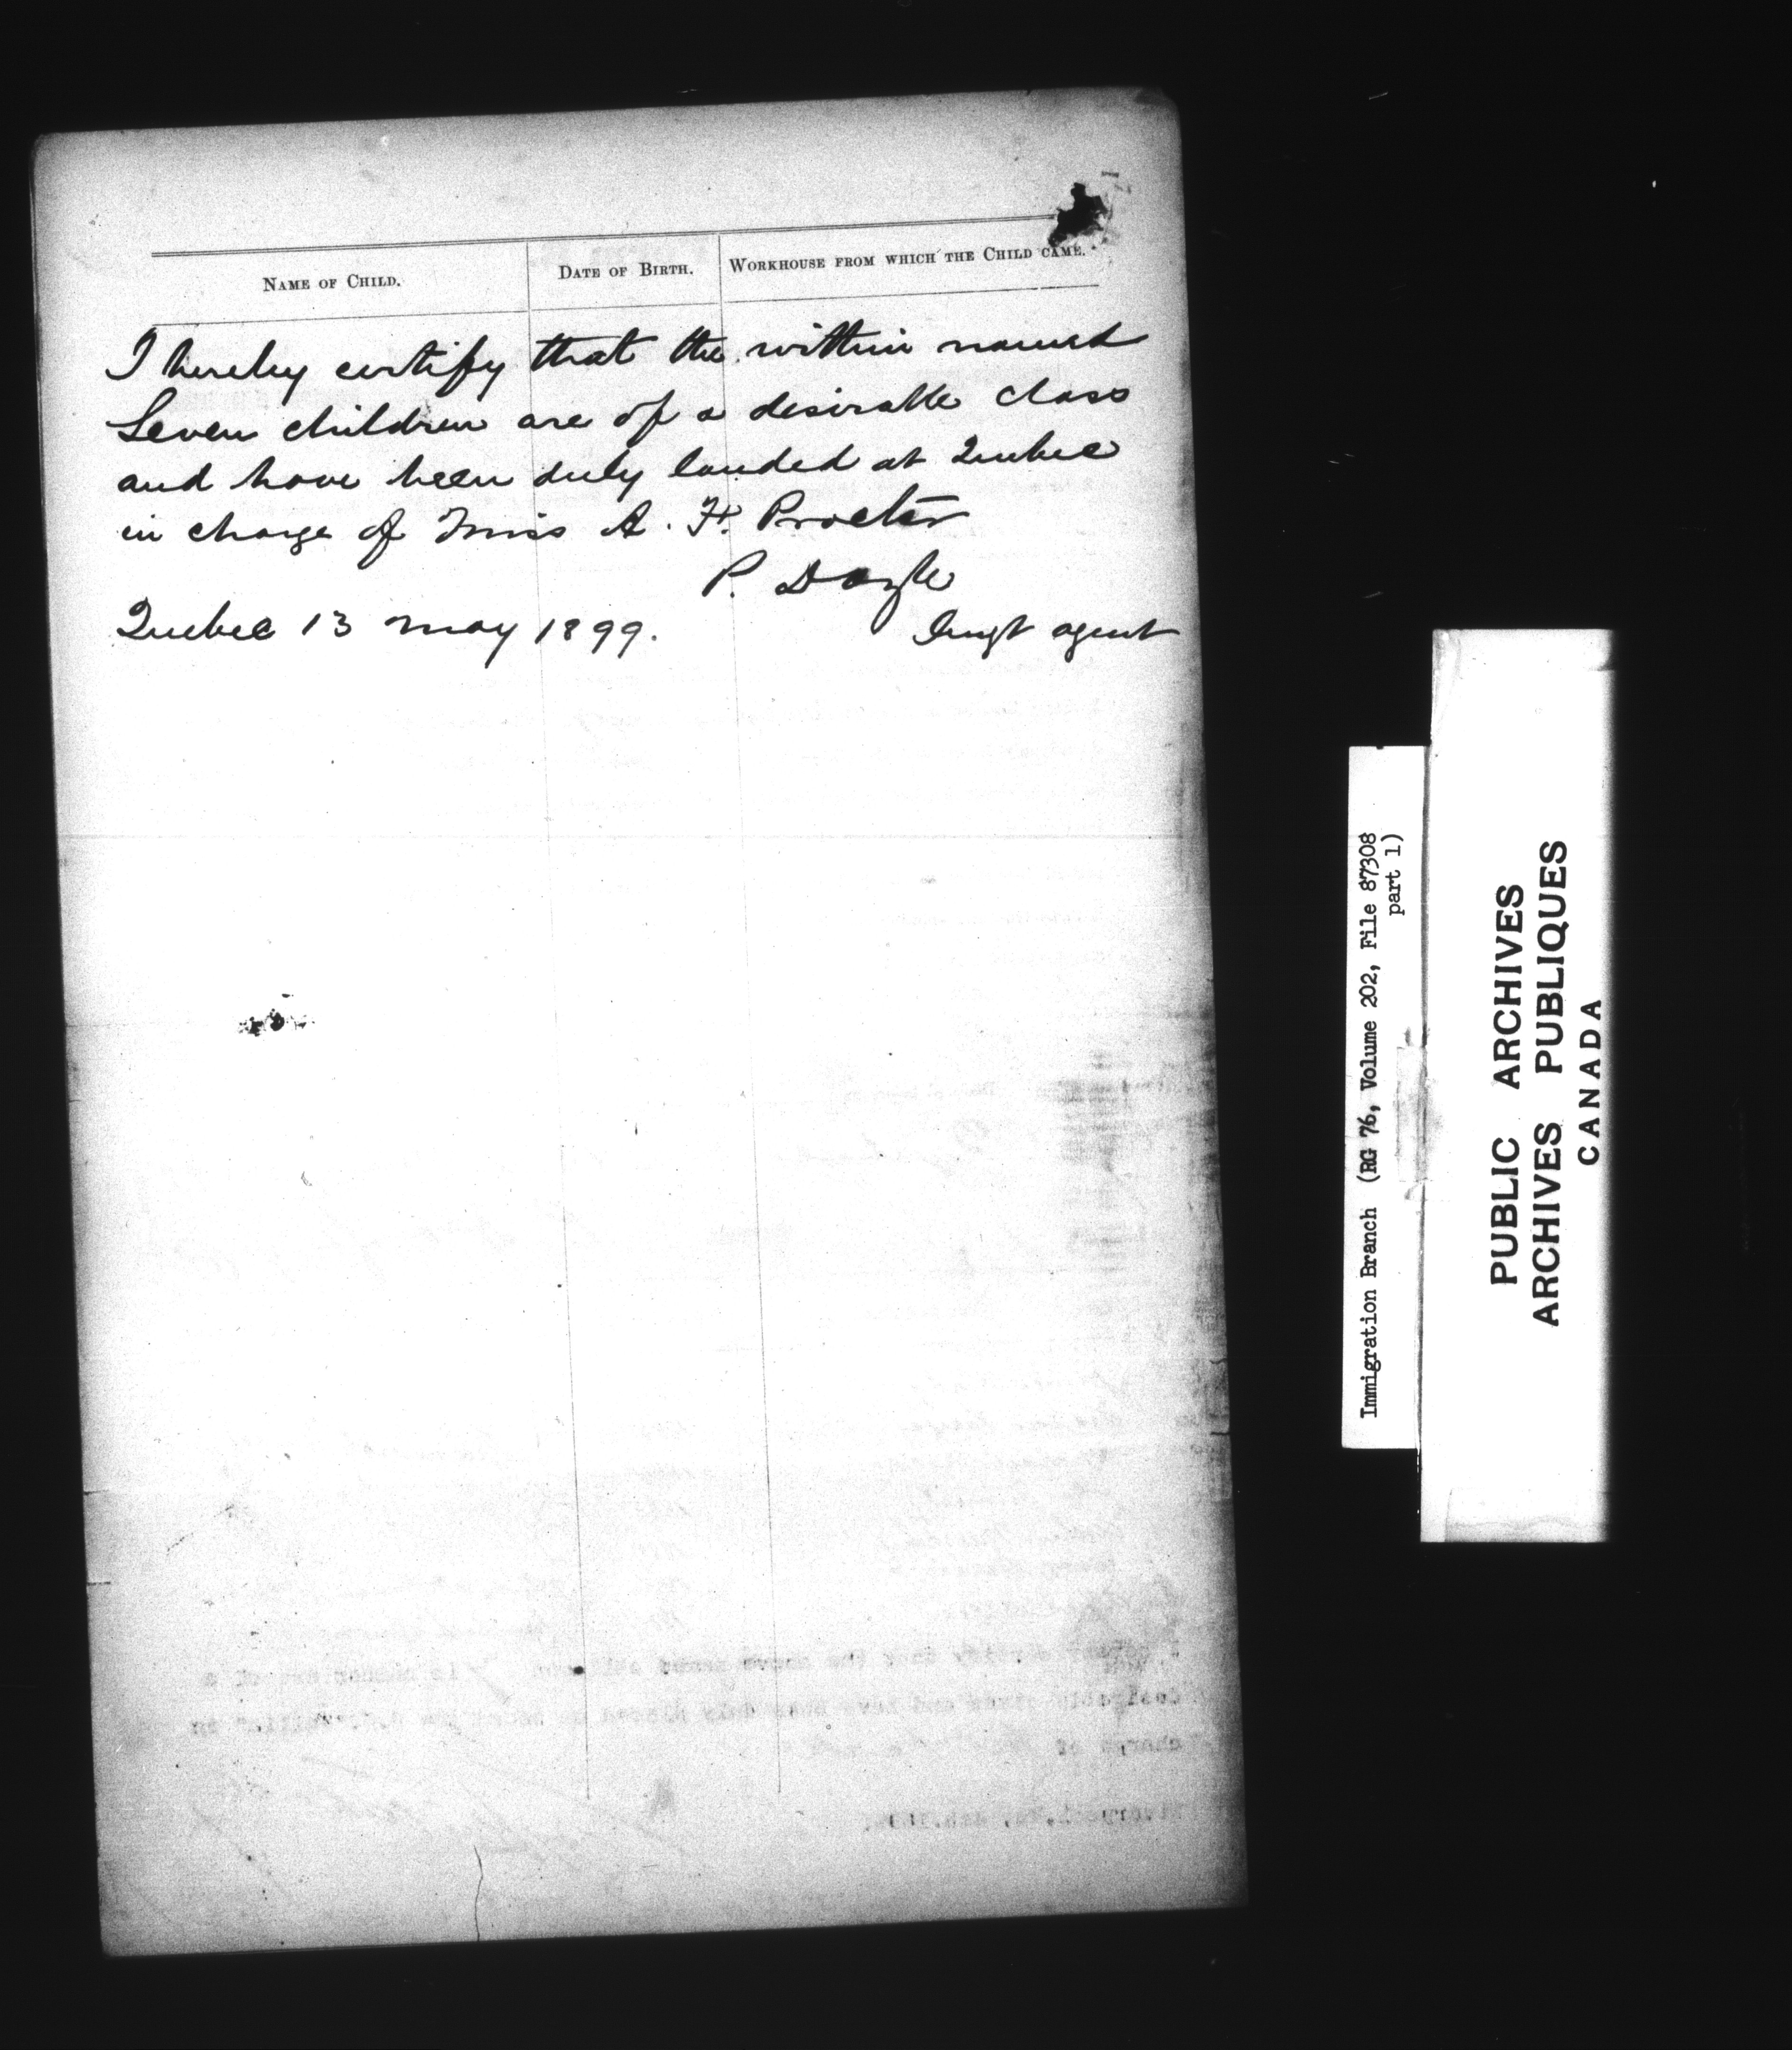 NAME OF CHILD. DATE OF BIRTH. WORKHOUSE FROM WHICH THE CHILD CAME.
I hereby certify that the within named
Seven children are of a desirable class
and have been duly landed at Quebec
in charge of Miss A. F. Procter
P. Doyle
Quebec 13 May 1899. Imgt agent
Immigration Branch (RG 76, Volume 202, File 87308
part 1)
PUBLIC ARCHIVES
ARCHIVES PUBLIQUES
CANADA